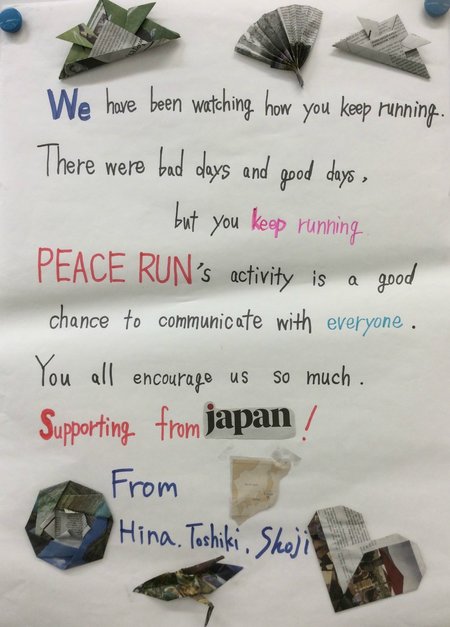 We have been watching how you keep running.
There were bad days and good days,
but you keep running
PEACE RUN's activity is a good
chance to communicate with everyone.
You all encourage us so much.
Supporting from japan!
From
Hina. Toshiki. Shoji